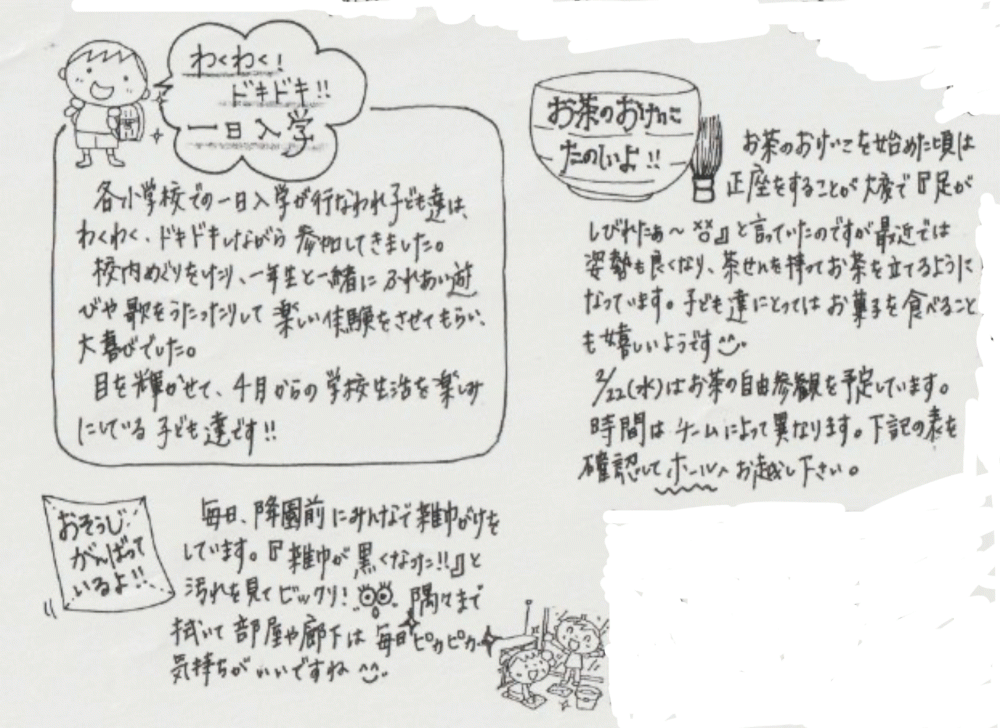 わくわく!
ドキドキ!!
一日入学
各小学校での一日入学が行なわれ子ども達は、
わくわく、ドキドキしながら参加してきました。
校内めぐりをしたり、一年生と一緒にふれあい遊
びや歌をうたったりして楽しい体験をさせてもらい、
大喜びでした。
目を輝かせて、4月からの学校生活を楽しみ
にしている子ども達です!!
お茶のおけいこ
たのしいよ!!
お茶のおけいこを始めた頃は
正座をすることが大変で『足が
しびれたぁ〜』と言っていたのですが最近では
姿勢も良くなり、茶せんを持ってお茶を立てるように
なっています。子ども達にとってはお菓子を食べること
も嬉しいようです
2/22(水)はお茶の自由参観を予定しています。
時間はチームによって異なります。下記の表を
確認してホールへお越し下さい。
おそうじ
がんばって
いるよ!!
毎日、降園前にみんなで雑巾がけを
しています。『雑巾が黒くなった!!』と
汚れを見てビックリ! 隅々まで
拭いて部屋や廊下は毎日ピカピカ
気持ちがいいですね ^^